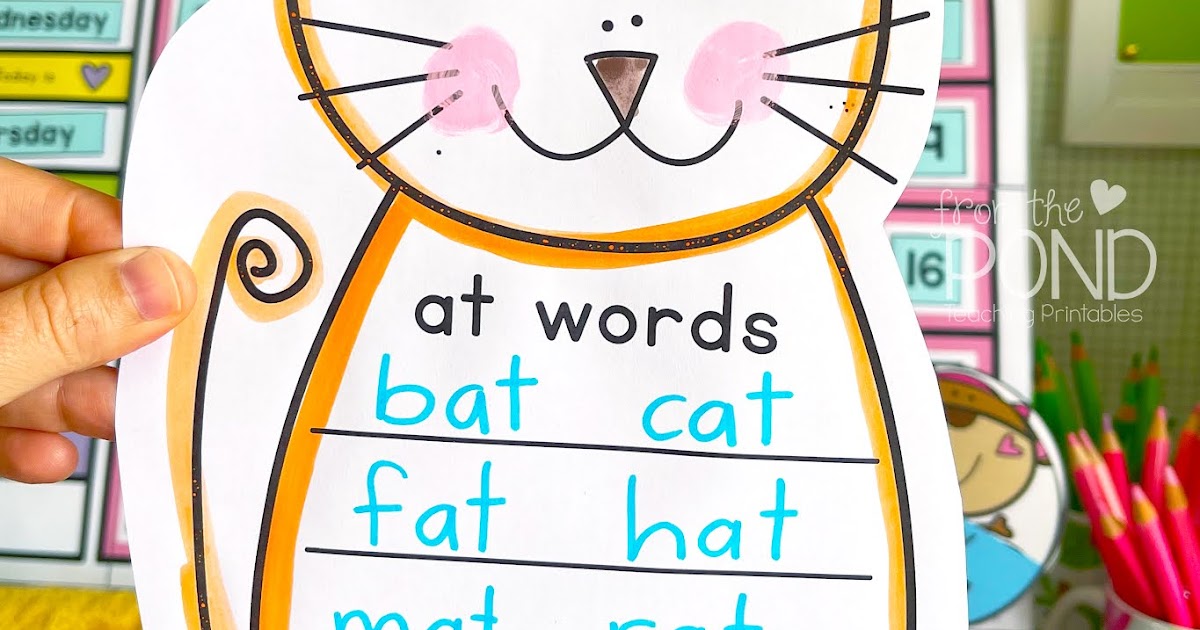 dnesday
Today is
rsday
9
16
from the
POND
Teaching Printables
at words
bat cat
fat hat
mat rat